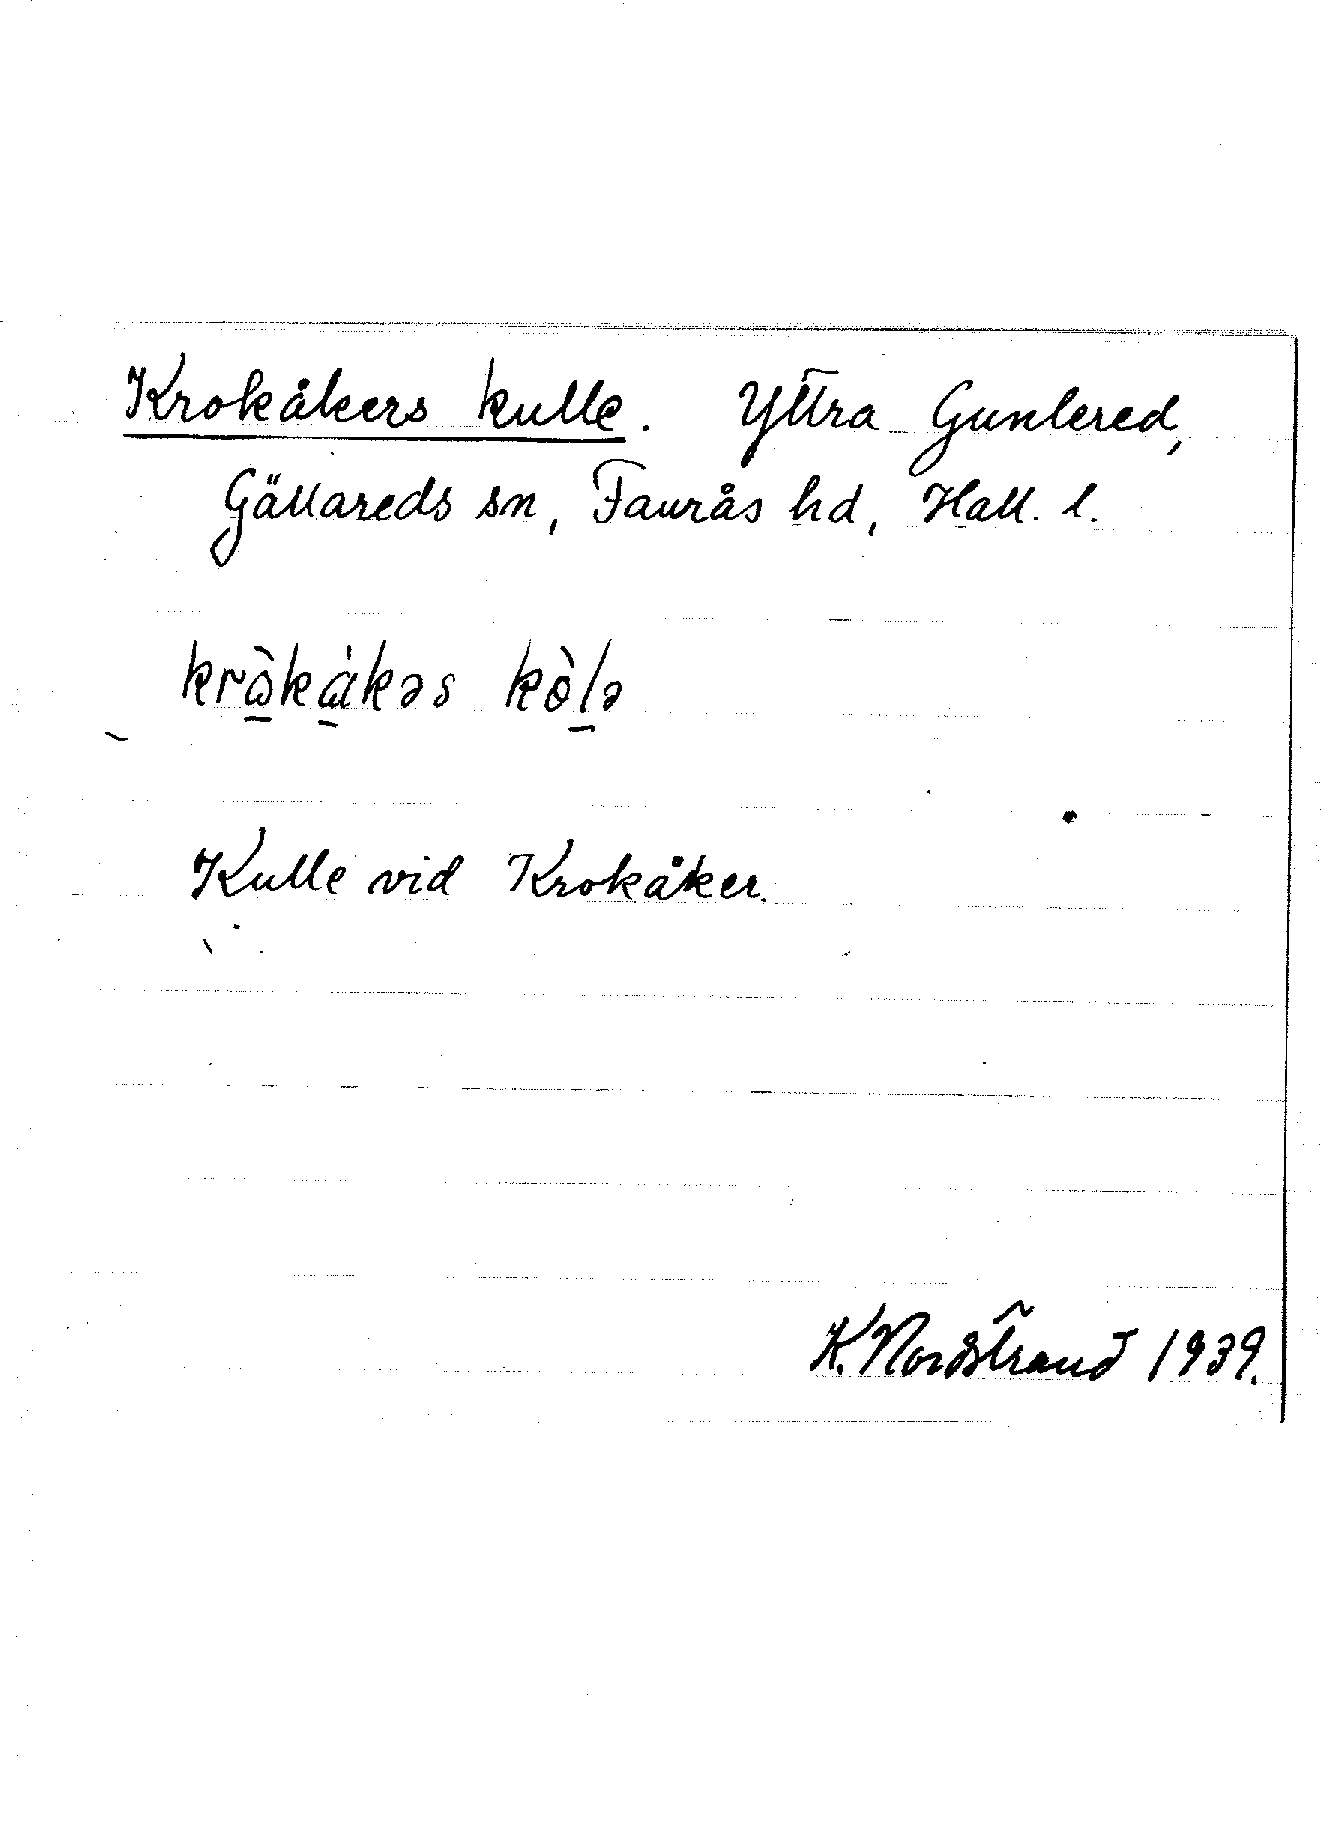 Krokåkers kulle. Yttra Gunlered,
Gällareds sn, Faurås hd, Hall. l.
krὼkὼkəs kòlə
Kulle vid Krokåker.
K. Nordstrand 1939.